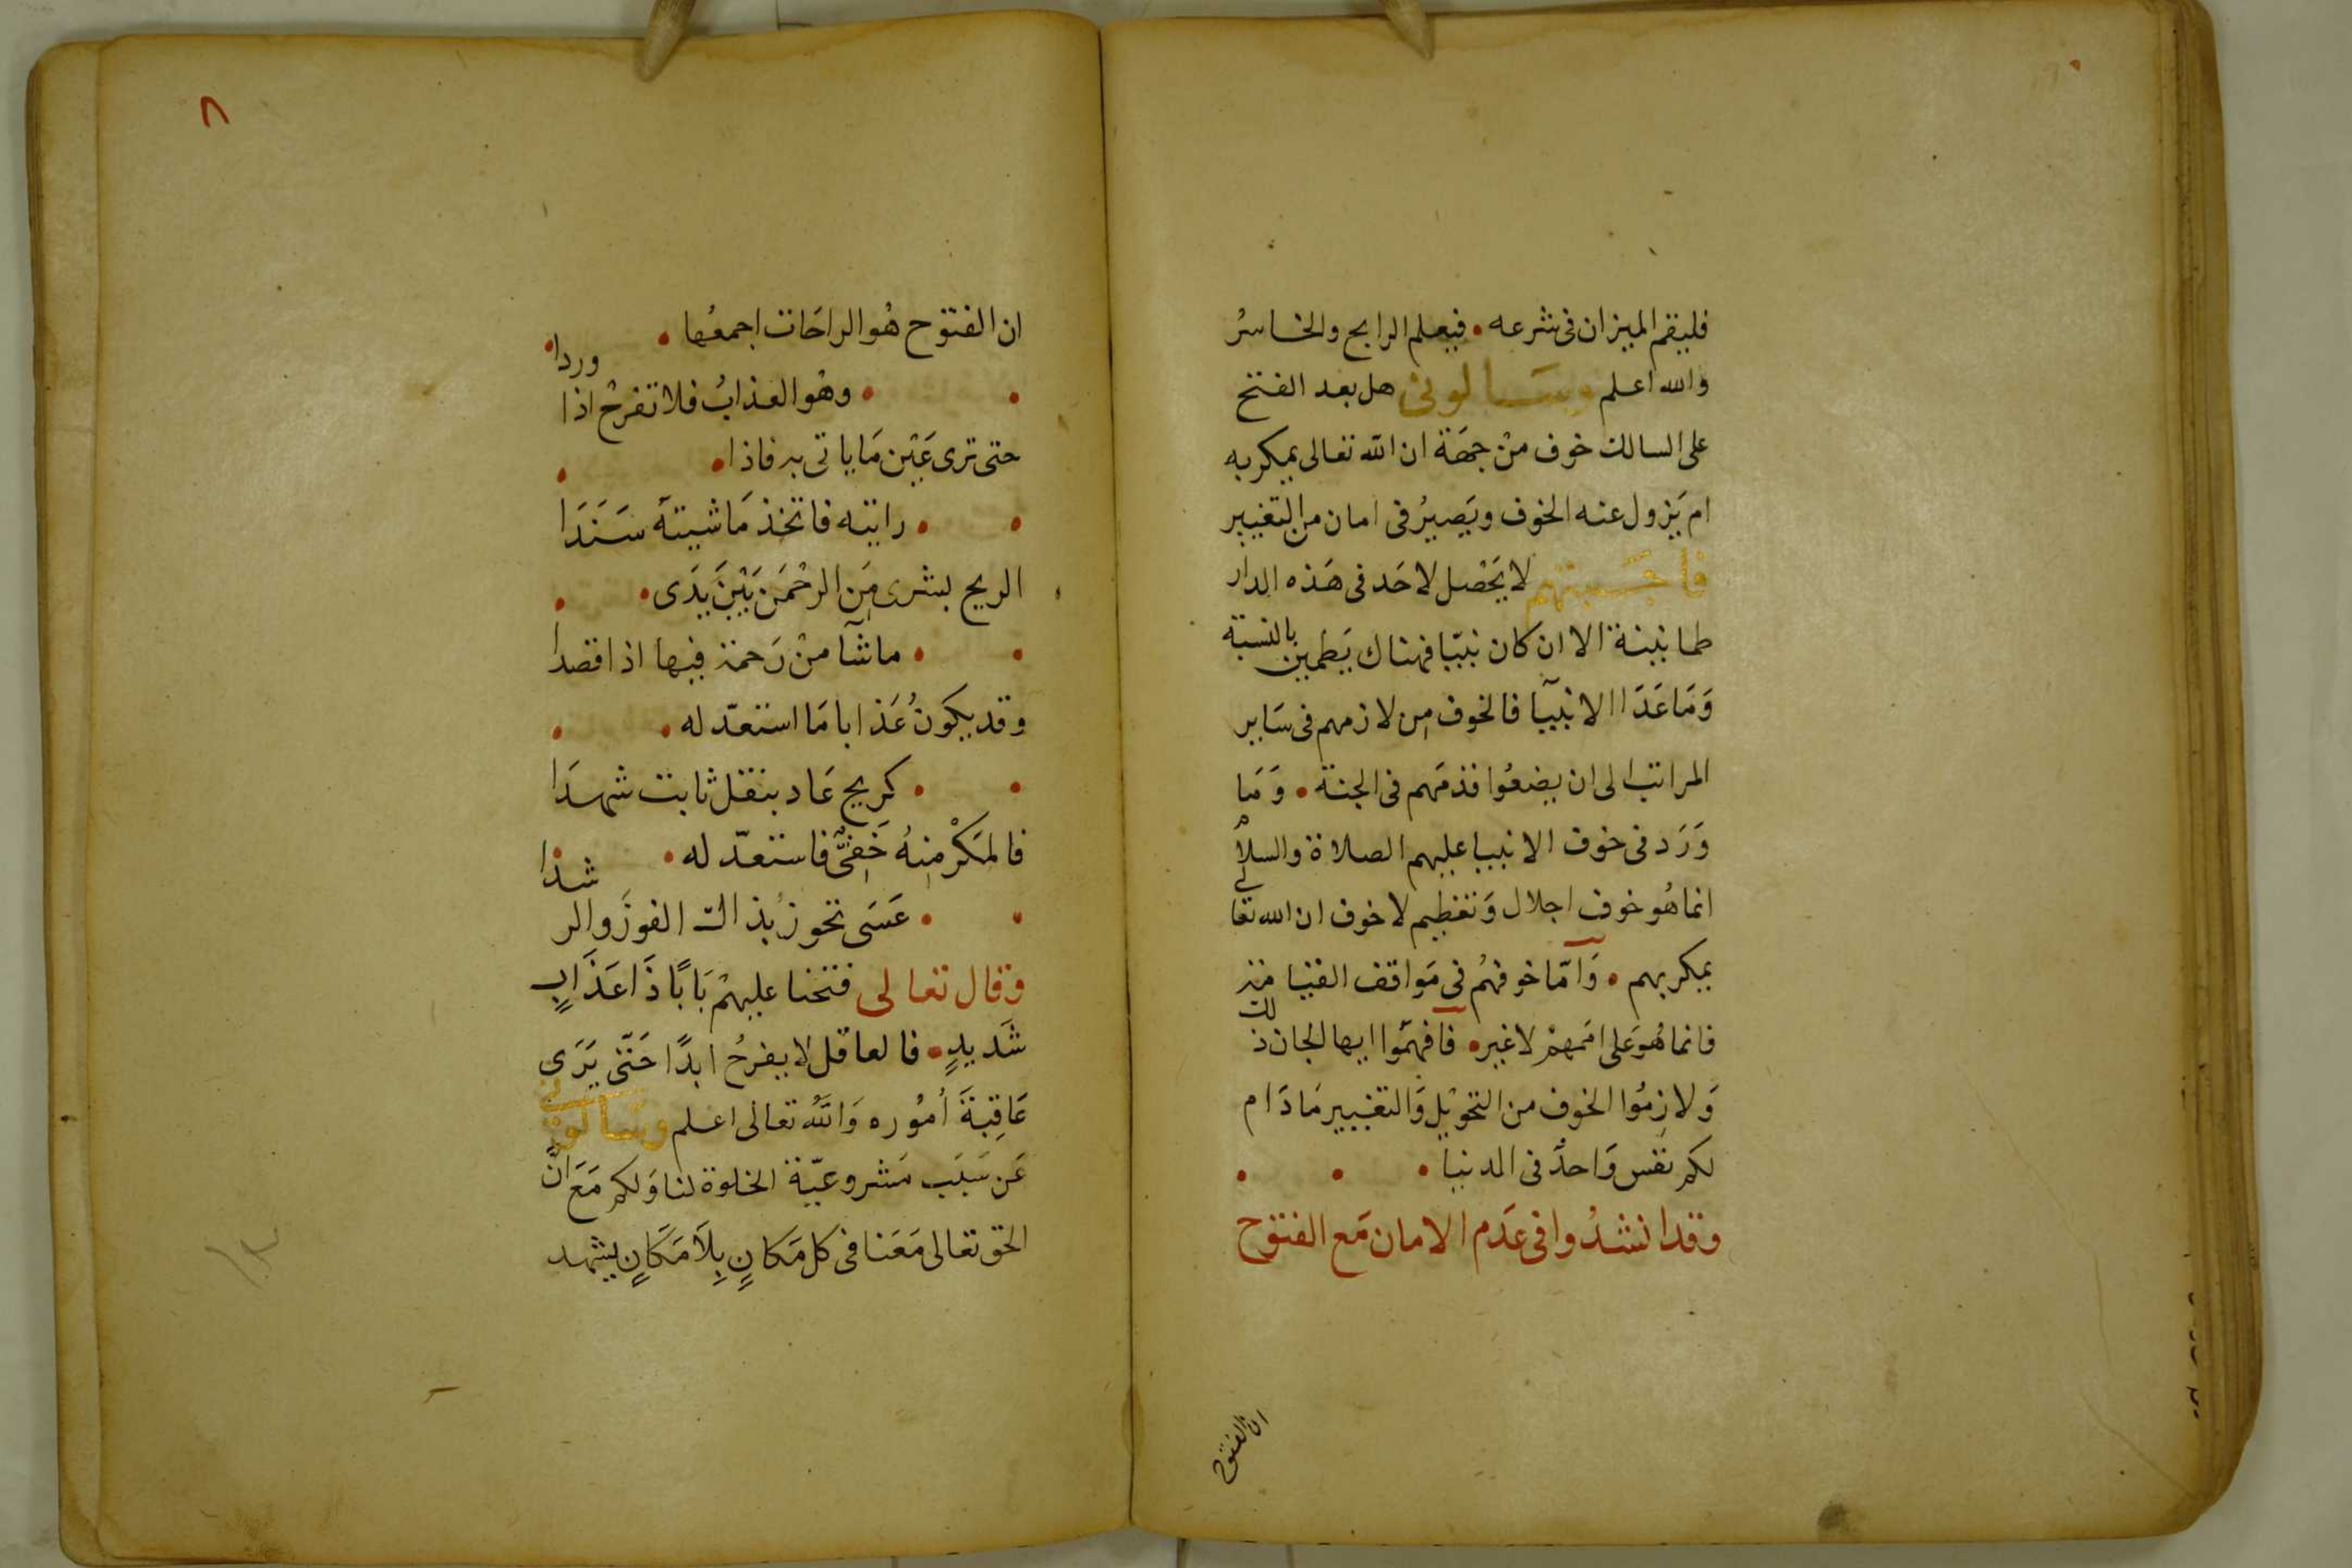 فليقم الميزان فى شرعه • فيعلم الرابح والخاسرُ
والله اعلم وسَالونى هل بعد الفتح
على السالك خوف منْ جهَة ان الله تعالى يمكر به
ام يَزول عنه الخوف ويَصيرُ فى امان من التغيير
فاجَبتهم لا يَحْصل لاحَد فى هَذه الدار
طمانينة الا ان كان نبيّا فهناك يَطمين بالنسبة
وَمَا عَدَا الانبيآ فالخوف مِن لازمهم فى سَاير
المراتب الى ان يضعُوا قدمَهم فى الجنة • وَمَا
وَرَد فى خوف الانبيا عليهم الصلاة والسلام
انما هُو خوف اجلال وَتعظيم لا خوف ان الله تعالى
يمكر بهم • وَامّا خوفهُم فى مَوَاقف القيامة
فانما هُوَ عَلى اممهمْ لا غير • فافهمَوا ايها الجان ذلك
وَلازمُوا الخوف من التحويْل وَالتغيير مَا دَام
لكم نفس وَاحدٌ فى الدنيا • • •
وقد انشدُوا فى عَدَم الامان مَع الفتوح
ان الفتوح
٨
ان الفتوح هُو الراحَات اجمعُها •
• • وهْو العذابُ فلا تفرحْ اذا وردا •
حتى ترى عَيْن مَا ياتى به فاذا • •
• • رايته فاتخذ مَا شيتهَ سَنَدَا
الريح بشرى مِن الرحْمَن بَيْنَ يَدَى • •
• • ماشآ منْ رَحمة فيها اذا قصدا
وقد يكونُ عَذابا مَا استعدّ له • •
• • كريح عَاد بنقل ثابت شهدَا
فالمَكْر مِنهُ خَفِىٌّ فاستعدّ له • •
• • عَسَى تحوز بذاك الفوزَ والرشدا
وقال تعالى فتحنا عليهمْ بَابًا ذَا عَذَابٍ
شَديدٍ • فالعاقل لا يفرحُ ابدًا حَتّى يَرَى
عَاقِبَةَ اُمُوره وَاللهُ تعالى اعلم وسَالونى
عَن سَبَب مَشروعيّة الخلوة لنا وَلكم مَعَ انَّ
الحق تعالى مَعَنا فى كل مَكانٍ بِلاَ مَكَانٍ يشهد